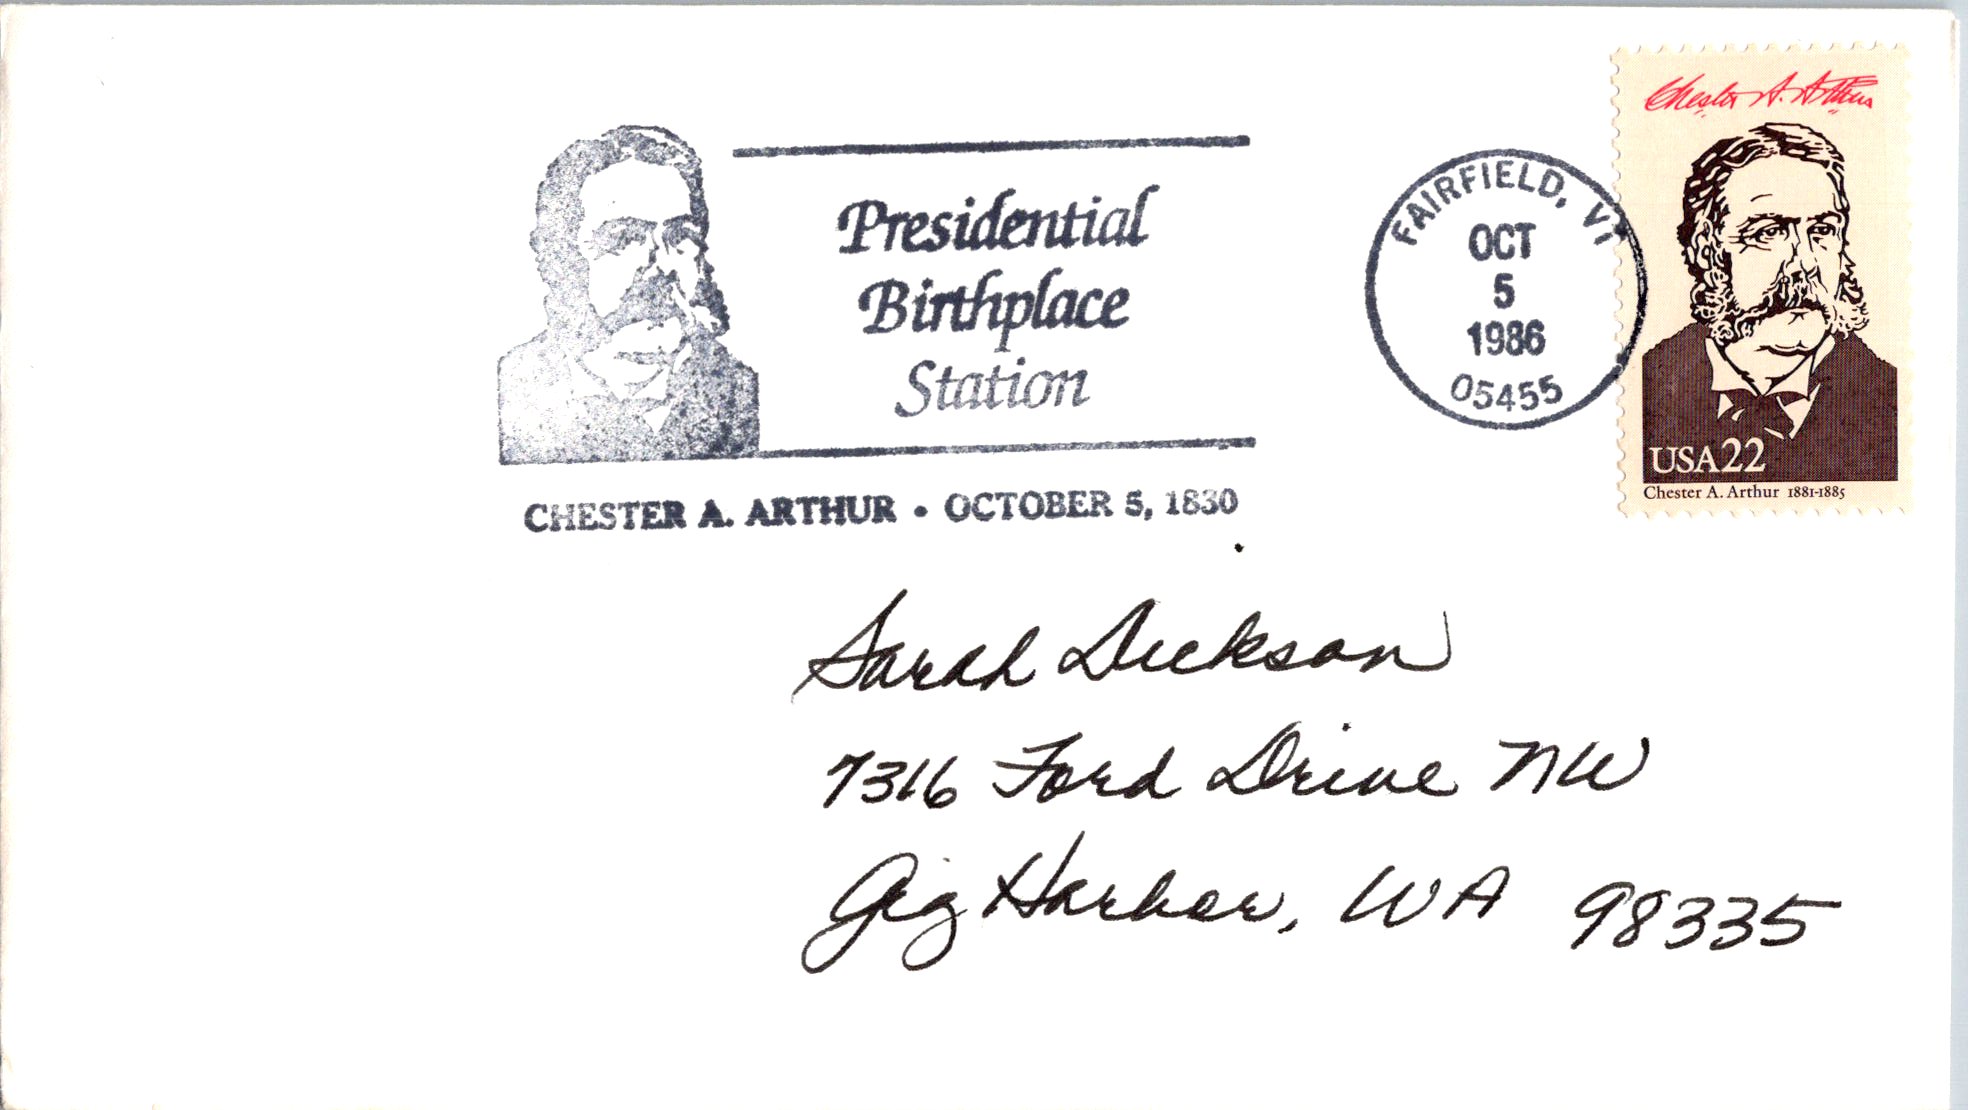 Chester A. Arthur
Presidential
Birthplace
Station
CHESTER A. ARTHUR • OCTOBER 5, 1830
FAIRFIELD, VT
OCT
5
1986
05455
USA 22
Chester A. Arthur 1881-1885
Sarah Dickson
7316 Ford Drive NW
Gig Harbor, WA 98335